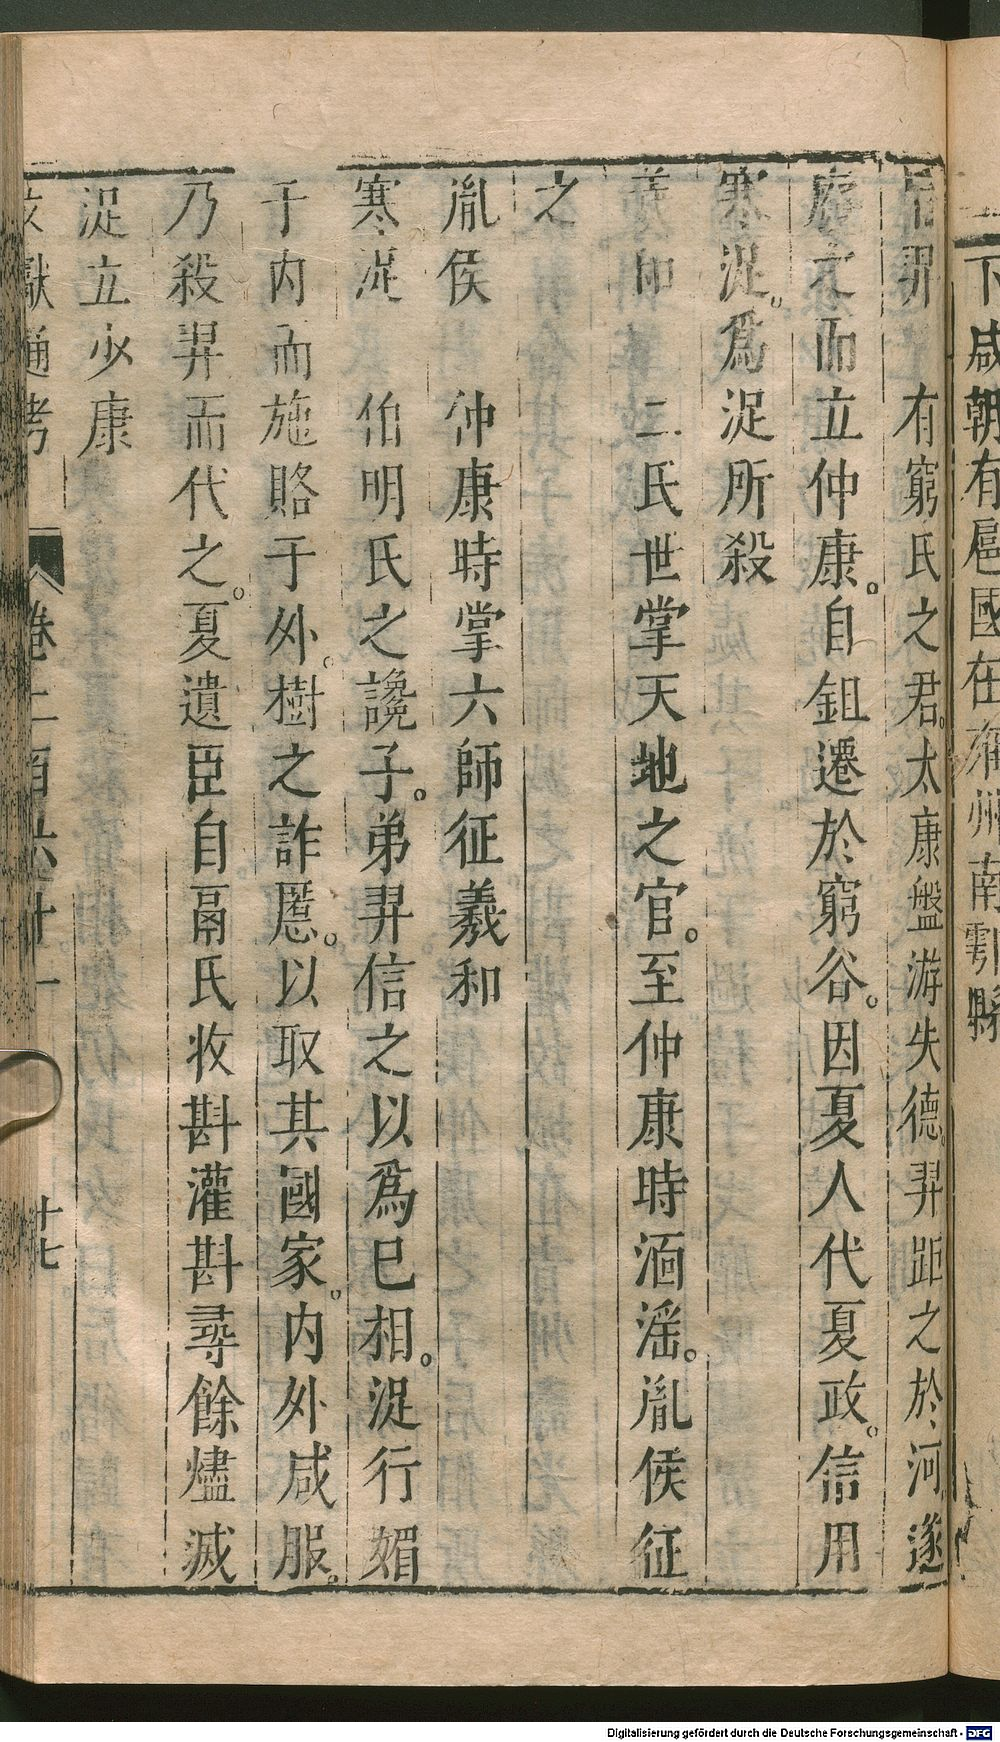 下咸朝有扈國在雍州南鄠縣
后羿　有窮氏之君。太康盤游失德。羿距之於河遂
廢之而立仲康。自鉏遷於窮谷。因夏人代夏政。信用
寒浞。爲浞所殺
羲和　二氏世掌天地之官。至仲康時湎淫。胤侯征
之
胤侯　仲康時掌六師征羲和
寒浞　伯明氏之讒子。弟羿信之以爲已相。浞行媚
于内而施賂于外。樹之詐慝。以取其國家。内外咸服。
乃殺羿而代之。夏遺臣自鬲氏收斟灌斟尋餘燼滅
浞立少康
文獻通考　卷二百六十一　十七
Digitalisierung gefördert durch die Deutsche Forschungsgemeinschaft - DFG